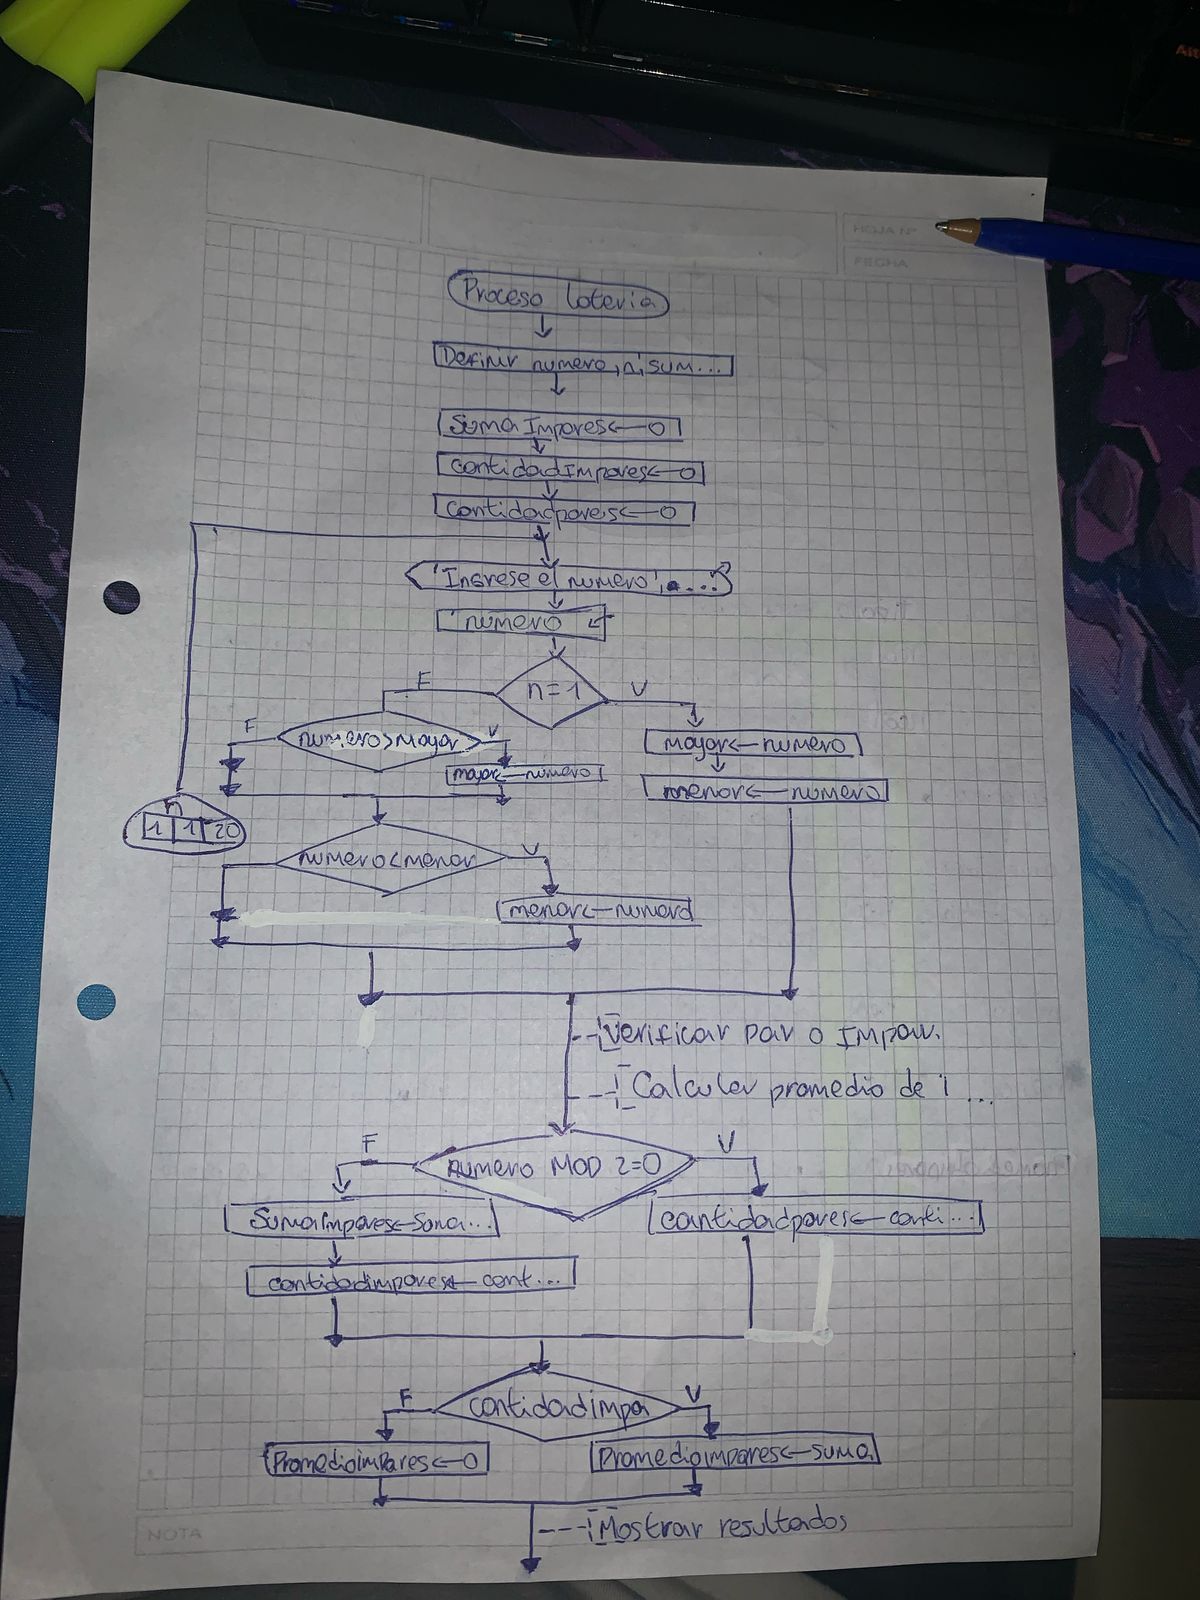 HOJA Nº
FECHA
Proceso loteria
Definir numero, n, sum...
Suma Impares<—0
cantidadImpares<—0
Cantidadpares<—0
'Ingrese el numero', ....
'numero
n=1
F
V
numero>mayor
F
V
mayor<—numero
mayor<—numero
menor<—numero
n
1 1 20
numero<menor
V
menor<—numero
Verificar par o Impar.
Calcular promedio de i ...
numero MOD 2=0
F
V
Sumaimpares<—Suma...
cantidadpares<—canti...
cantidadimpares<—cant...
cantidadimpa
F
V
Promedioimpares<—0
Promedioimpares<—suma
Mostrar resultados
NOTA